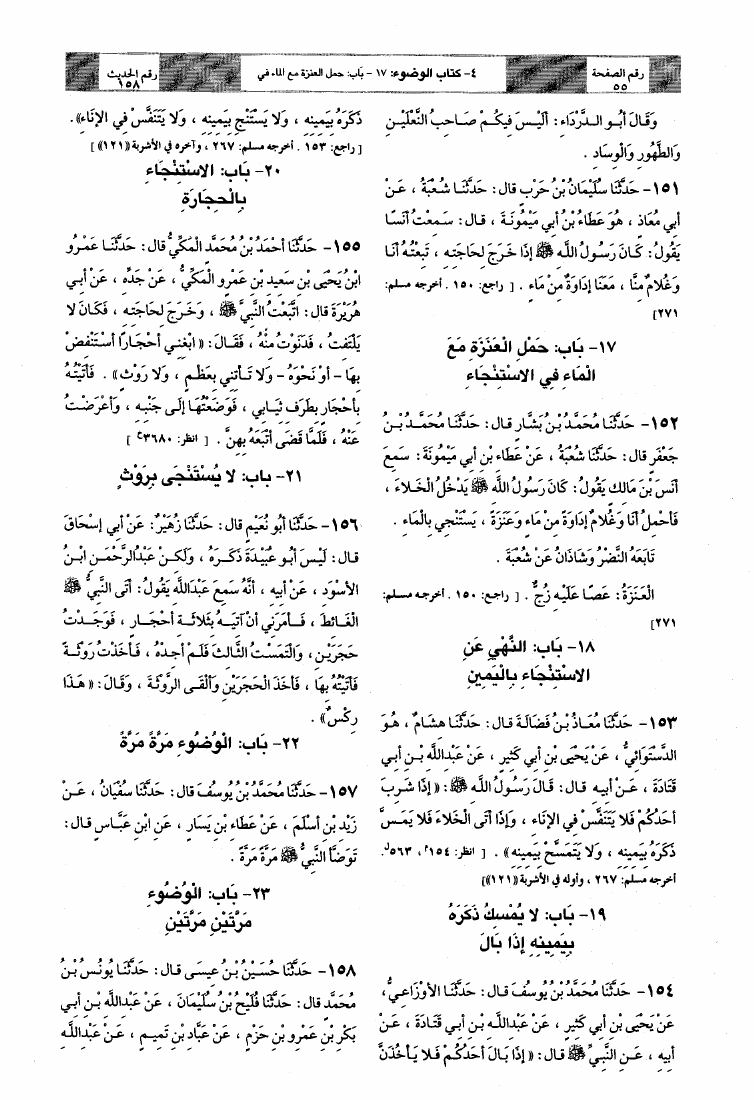 رقم الصفحة
٥٥
٤- كتاب الوضوء: ١٧ - بَاب: حمل العنزة مع الماء في
رقم الحديث
١٥٨
وَقَالَ أَبُو الدَّرْدَاءِ: أَلَيْسَ فِيكُمْ صَاحِبُ النَّعْلَيْنِ
وَالطَّهُورِ وَالْوِسَادِ .
١٥١- حَدَّثَنَا سُلَيْمَانُ بْنُ حَرْبٍ قال: حَدَّثَنَا شُعْبَةُ ، عَنْ
أبي مُعَاذٍ ، هُوَ عَطَاءُ بْنُ أبي مَيْمُونَةَ ، قال: سَمِعْتُ أَنَسًا
يَقُولُ: كَانَ رَسُولُ اللَّهِ ﷺ إِذَا خَرَجَ لِحَاجَتِهِ ، تَبِعْتُهُ أَنَا
وَغُلامٌ مِنَّا ، مَعَنَا إِدَاوَةٌ مِنْ مَاءٍ . [ راجع: ١٥٠ . أخرجه مسلم:
٢٧١]
١٧- بَاب: حَمْلِ الْعَنَزَةِ مَعَ
الْمَاءِ فِي الاسْتِنْجَاءِ
١٥٢- حَدَّثَنَا مُحَمَّدُ بْنُ بَشَّارٍ قال: حَدَّثَنَا مُحَمَّدُ بْنُ
جَعْفَرٍ قال: حَدَّثَنَا شُعْبَةُ ، عَنْ عَطَاءِ بْنِ أبي مَيْمُونَةَ: سَمِعَ
أَنَسَ بْنَ مَالِكٍ يَقُولُ: كَانَ رَسُولُ اللَّهِ ﷺ يَدْخُلُ الْخَلاءَ ،
فَأَحْمِلُ أَنَا وَغُلامٌ إِدَاوَةً مِنْ مَاءٍ وَعَنَزَةً ، يَسْتَنْجِي بِالْمَاءِ .
تَابَعَهُ النَّضْرُ وَشَاذَانُ عَنْ شُعْبَةَ .
الْعَنَزَةُ: عَصًا عَلَيْهِ زُجٌّ . [ راجع: ١٥٠ . أخرجه مسلم:
٢٧١]
١٨- بَاب: النَّهْيِ عَنِ
الاسْتِنْجَاءِ بِالْيَمِينِ
١٥٣- حَدَّثَنَا مُعَاذُ بْنُ فَضَالَةَ قال: حَدَّثَنَا هِشَامٌ ، هُوَ
الدَّسْتَوَائِيُّ ، عَنْ يَحْيَى بْنِ أبي كَثِيرٍ ، عَنْ عَبْدِاللَّهِ بْنِ أبي
قَتَادَةَ ، عَنْ أبيه قال: قَالَ رَسُولُ اللَّهِ ﷺ: «إِذَا شَرِبَ
أَحَدُكُمْ فَلا يَتَنَفَّسْ فِي الإِنَاءِ ، وَإِذَا أَتَى الْخَلاءَ فَلا يَمَسَّ
ذَكَرَهُ بِيَمِينِهِ ، وَلا يَتَمَسَّحْ بِيَمِينِهِ» . [ انظر: ١٥٤، ٥٦٣.
أخرجه مسلم: ٢٦٧ ، وأوله في الأشربة «(١٢١)»]
١٩- بَاب: لا يُمْسِكُ ذَكَرَهُ
بِيَمِينِهِ إِذَا بَالَ
١٥٤- حَدَّثَنَا مُحَمَّدُ بْنُ يُوسُفَ قال: حَدَّثَنَا الأوْزَاعِيُّ ،
عَنْ يَحْيَى بْنِ أبي كَثِيرٍ ، عَنْ عَبْدِاللَّهِ بْنِ أبي قَتَادَةَ ، عَنْ
أبيه ، عَنِ النَّبِيِّ ﷺ قال: «إِذَا بَالَ أَحَدُكُمْ فَلا يَأْخُذَنَّ
ذَكَرَهُ بِيَمِينِهِ ، وَلا يَسْتَنْجِ بِيَمِينِهِ ، وَلا يَتَنَفَّسْ فِي الإِنَاءِ» .
[ راجع: ١٥٣ . أخرجه مسلم: ٢٦٧ ، وآخره في الأشربة «(١٢١)» ]
٢٠- بَاب: الاسْتِنْجَاءِ
بِالْحِجَارَةِ
١٥٥- حَدَّثَنَا أَحْمَدُ بْنُ مُحَمَّدٍ الْمَكِّيُّ قال: حَدَّثَنَا عَمْرُو
ابْنُ يَحْيَى بْنِ سَعِيدِ بْنِ عَمْرٍو الْمَكِّيُّ ، عَنْ جَدِّهِ ، عَنْ أبي
هُرَيْرَةَ قال: اتَّبَعْتُ النَّبِيَّ ﷺ ، وَخَرَجَ لِحَاجَتِهِ ، فَكَانَ لا
يَلْتَفِتُ ، فَدَنَوْتُ مِنْهُ ، فَقَالَ: «ابْغِنِي أَحْجَارًا أَسْتَنْفِضْ
بِهَا - أَوْ نَحْوَهُ - وَلا تَأْتِنِي بِعَظْمٍ ، وَلا رَوْثٍ» . فَأَتَيْتُهُ
بِأَحْجَارٍ بِطَرَفِ ثِيَابِي ، فَوَضَعْتُهَا إِلَى جَنْبِهِ ، وَأَعْرَضْتُ
عَنْهُ ، فَلَمَّا قَضَى أَتْبَعَهُ بِهِنَّ . [ انظر: ٣٦٨٠ ]
٢١- بَاب: لا يُسْتَنْجَى بِرَوْثٍ
١٥٦- حَدَّثَنَا أَبُو نُعَيْمٍ قال: حَدَّثَنَا زُهَيْرٌ: عَنْ أبي إِسْحَاقَ
قال: لَيْسَ أَبُو عُبَيْدَةَ ذَكَرَهُ ، وَلَكِنْ عَبْدُالرَّحْمَنِ ابْنُ
الأسْوَدِ ، عَنْ أبيه ، أَنَّهُ سَمِعَ عَبْدَاللَّهِ يَقُولُ: أَتَى النَّبِيُّ ﷺ
الْغَائِطَ ، فَأَمَرَنِي أَنْ آتِيَهُ بِثَلاثَةِ أَحْجَارٍ ، فَوَجَدْتُ
حَجَرَيْنِ ، وَالْتَمَسْتُ الثَّالِثَ فَلَمْ أَجِدْهُ ، فَأَخَذْتُ رَوْثَةً
فَأَتَيْتُهُ بِهَا ، فَأَخَذَ الْحَجَرَيْنِ وَأَلْقَى الرَّوْثَةَ ، وَقَالَ: «هَذَا
رِكْسٌ» .
٢٢- بَاب: الْوُضُوءِ مَرَّةً مَرَّةً
١٥٧- حَدَّثَنَا مُحَمَّدُ بْنُ يُوسُفَ قال: حَدَّثَنَا سُفْيَانُ ، عَنْ
زَيْدِ بْنِ أَسْلَمَ ، عَنْ عَطَاءِ بْنِ يَسَارٍ ، عَنِ ابْنِ عَبَّاسٍ قال:
تَوَضَّأَ النَّبِيُّ ﷺ مَرَّةً مَرَّةً .
٢٣- بَاب: الْوُضُوءِ
مَرَّتَيْنِ مَرَّتَيْنِ
١٥٨- حَدَّثَنَا حُسَيْنُ بْنُ عِيسَى قال: حَدَّثَنَا يُونُسُ بْنُ
مُحَمَّدٍ قال: حَدَّثَنَا فُلَيْحُ بْنُ سُلَيْمَانَ ، عَنْ عَبْدِاللَّهِ بْنِ أبي
بَكْرِ بْنِ عَمْرِو بْنِ حَزْمٍ ، عَنْ عَبَّادِ بْنِ تَمِيمٍ ، عَنْ عَبْدِاللَّهِ